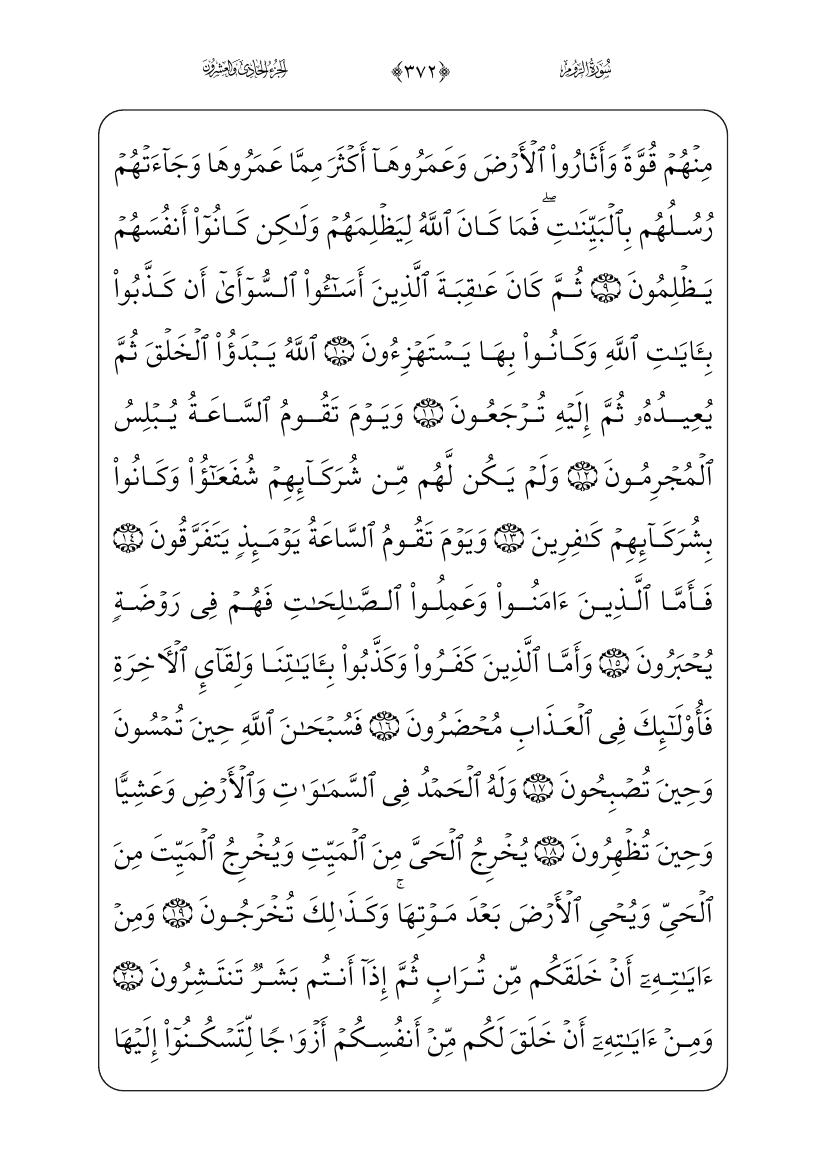 سُورَةُ الرُّومِ ﴿٣٧٢﴾ الجُزْءُ الحَادِي وَالعِشْرُون
مِنۡهُمۡ قُوَّةٗ وَأَثَارُواْ ٱلۡأَرۡضَ وَعَمَرُوهَآ أَكۡثَرَ مِمَّا عَمَرُوهَا وَجَآءَتۡهُمۡ
رُسُلُهُم بِٱلۡبَيِّنَٰتِۖ فَمَا كَانَ ٱللَّهُ لِيَظۡلِمَهُمۡ وَلَٰكِن كَانُوٓاْ أَنفُسَهُمۡ
يَظۡلِمُونَ ٩ ثُمَّ كَانَ عَٰقِبَةَ ٱلَّذِينَ أَسَٰٓـُٔواْ ٱلسُّوٓأَىٰٓ أَن كَذَّبُواْ
بِـَٔايَٰتِ ٱللَّهِ وَكَانُواْ بِهَا يَسۡتَهۡزِءُونَ ١٠ ٱللَّهُ يَبۡدَؤُاْ ٱلۡخَلۡقَ ثُمَّ
يُعِيدُهُۥ ثُمَّ إِلَيۡهِ تُرۡجَعُونَ ١١ وَيَوۡمَ تَقُومُ ٱلسَّاعَةُ يُبۡلِسُ
ٱلۡمُجۡرِمُونَ ١٢ وَلَمۡ يَكُن لَّهُم مِّن شُرَكَآئِهِمۡ شُفَعَٰٓؤُاْ وَكَانُواْ
بِشُرَكَآئِهِمۡ كَٰفِرِينَ ١٣ وَيَوۡمَ تَقُومُ ٱلسَّاعَةُ يَوۡمَئِذٖ يَتَفَرَّقُونَ ١٤
فَأَمَّا ٱلَّذِينَ ءَامَنُواْ وَعَمِلُواْ ٱلصَّٰلِحَٰتِ فَهُمۡ فِي رَوۡضَةٖ
يُحۡبَرُونَ ١٥ وَأَمَّا ٱلَّذِينَ كَفَرُواْ وَكَذَّبُواْ بِـَٔايَٰتِنَا وَلِقَآيِٕ ٱلۡأٓخِرَةِ
فَأُوْلَٰٓئِكَ فِي ٱلۡعَذَابِ مُحۡضَرُونَ ١٦ فَسُبۡحَٰنَ ٱللَّهِ حِينَ تُمۡسُونَ
وَحِينَ تُصۡبِحُونَ ١٧ وَلَهُ ٱلۡحَمۡدُ فِي ٱلسَّمَٰوَٰتِ وَٱلۡأَرۡضِ وَعَشِيّٗا
وَحِينَ تُظۡهِرُونَ ١٨ يُخۡرِجُ ٱلۡحَيَّ مِنَ ٱلۡمَيِّتِ وَيُخۡرِجُ ٱلۡمَيِّتَ مِنَ
ٱلۡحَيِّ وَيُحۡيِ ٱلۡأَرۡضَ بَعۡدَ مَوۡتِهَاۚ وَكَذَٰلِكَ تُخۡرَجُونَ ١٩ وَمِنۡ
ءَايَٰتِهِۦٓ أَنۡ خَلَقَكُم مِّن تُرَابٖ ثُمَّ إِذَآ أَنتُم بَشَرٞ تَنتَشِرُونَ ٢٠
وَمِنۡ ءَايَٰتِهِۦٓ أَنۡ خَلَقَ لَكُم مِّنۡ أَنفُسِكُمۡ أَزۡوَٰجٗا لِّتَسۡكُنُوٓاْ إِلَيۡهَا